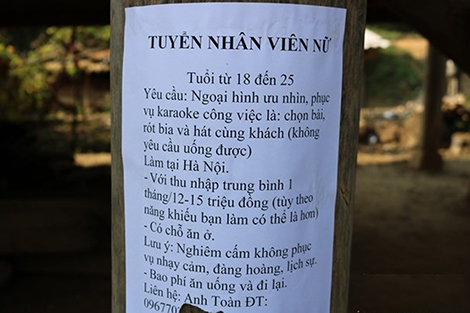 TUYỂN NHÂN VIÊN NỮ
Tuổi từ 18 đến 25
Yêu cầu: Ngoại hình ưu nhìn, phục
vụ karaoke công việc là: chọn bài,
rót bia và hát cùng khách (không
yêu cầu uống được)
Làm tại Hà Nội.
- Với thu nhập trung bình 1
tháng/12-15 triệu đồng (tùy theo
năng khiếu bạn làm có thể là hơn)
- Có chỗ ăn ở.
Lưu ý: Nghiêm cấm không phục
vụ nhạy cảm, đàng hoàng, lịch sự.
- Bao phí ăn uống và đi lại.
Liên hệ: Anh Toàn ĐT: